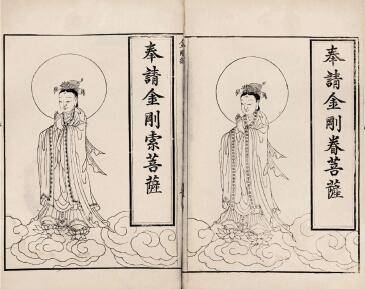 奉請金剛眷菩薩
奉請金剛索菩薩